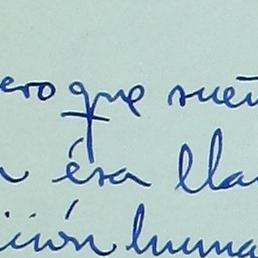 ero que sueñ
n ésa lla
ición huma